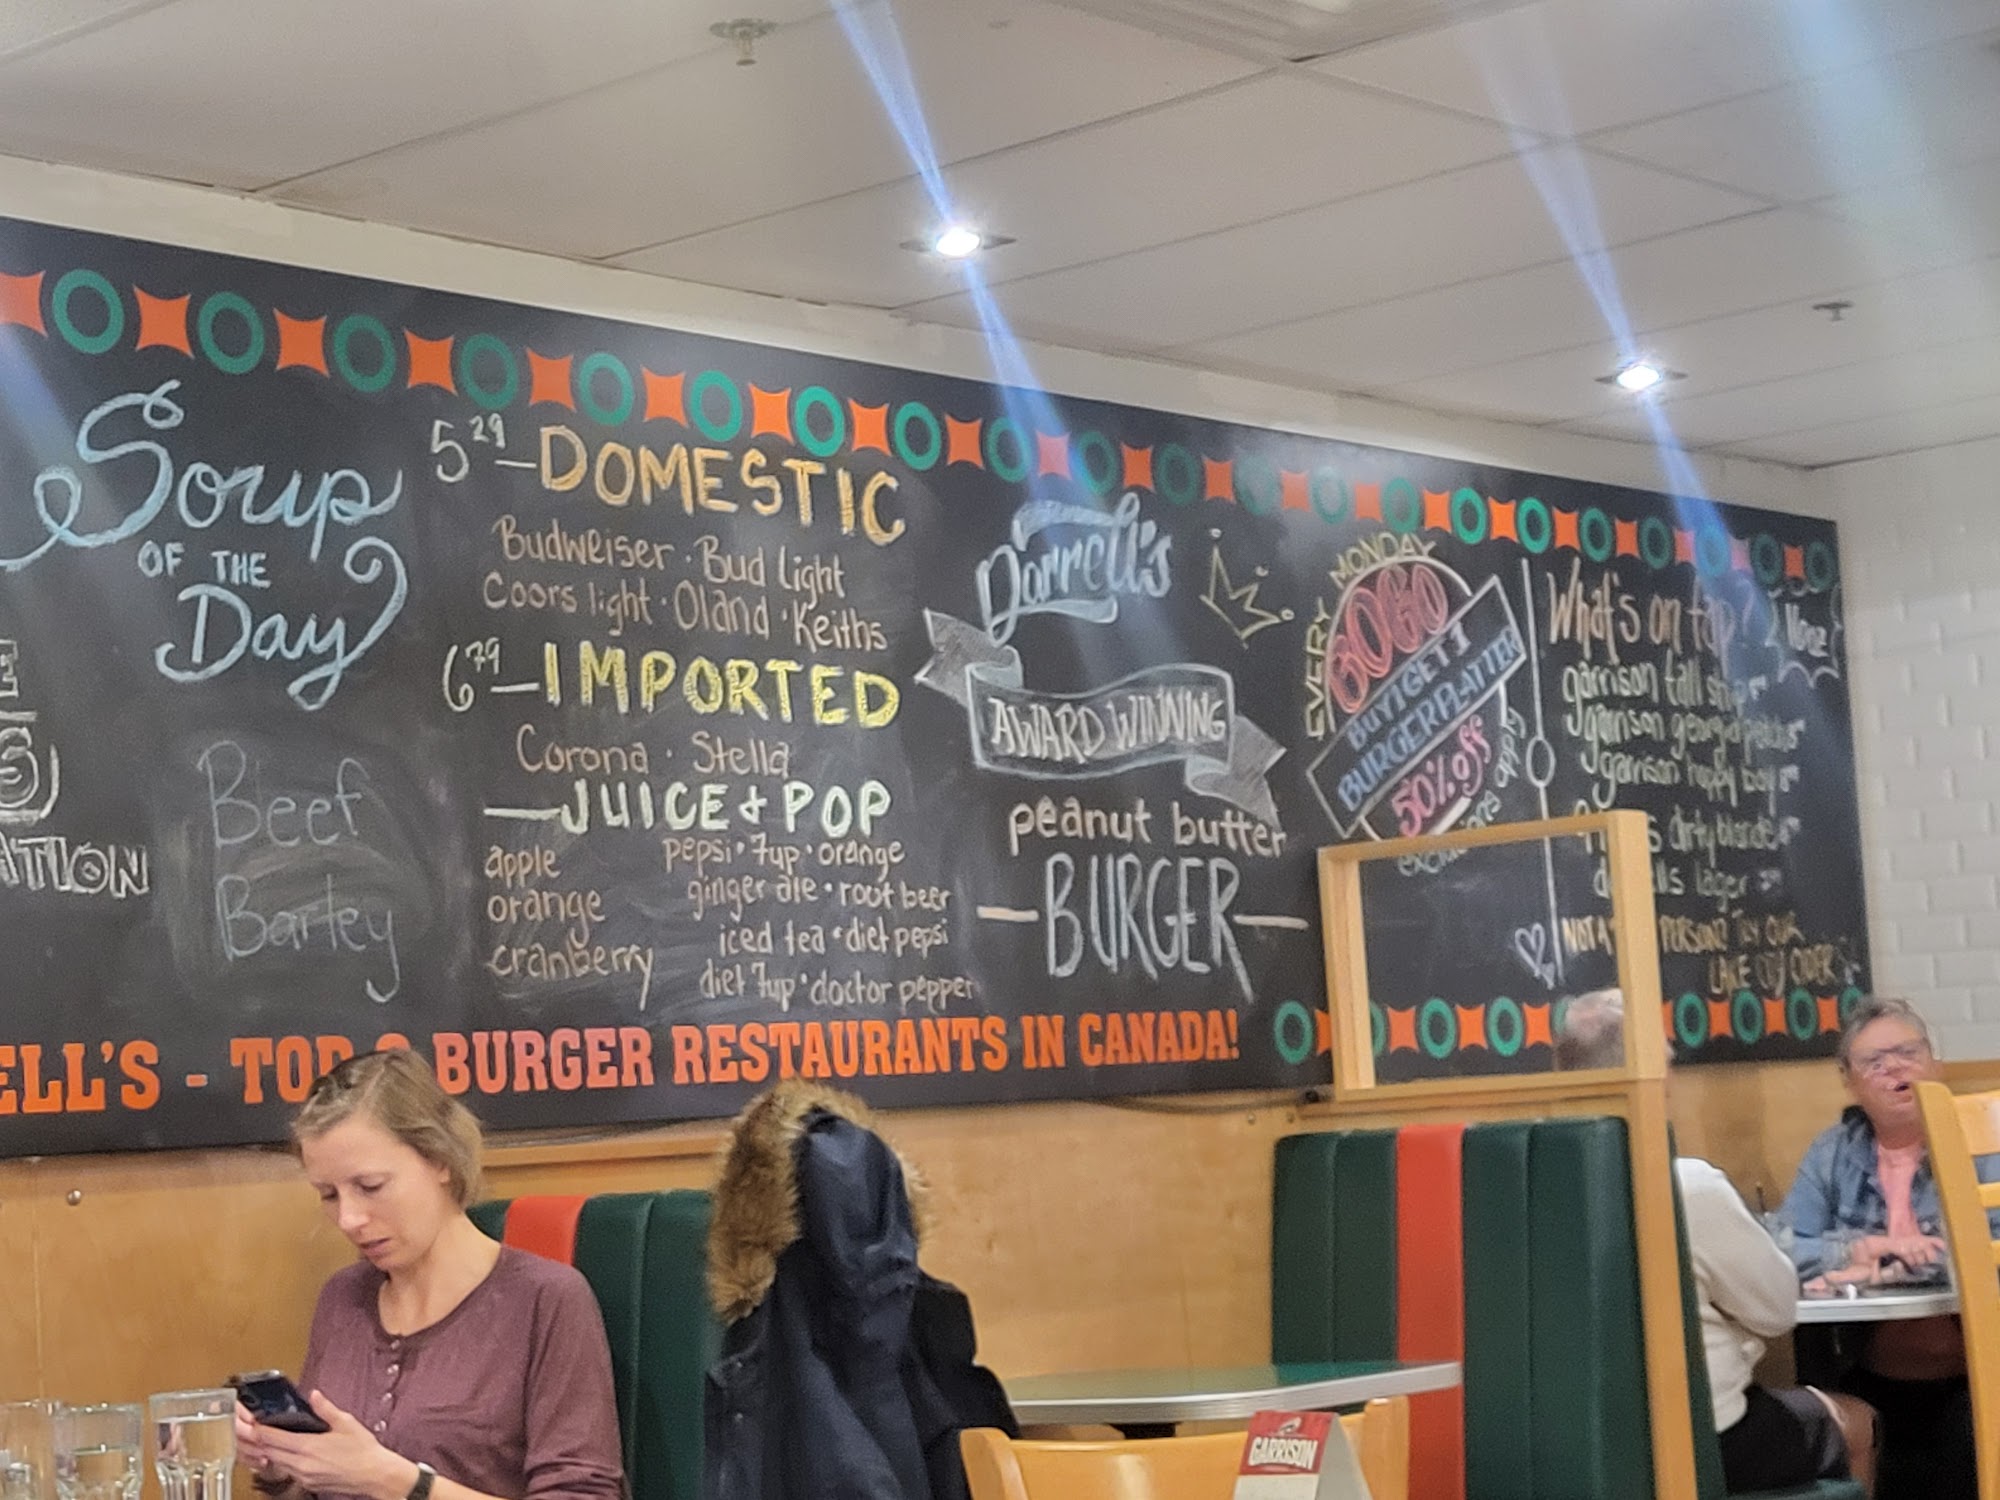 Soup
OF THE
Day
Beef
Barley
ATION
5.29 — DOMESTIC
Budweiser · Bud Light
Coors light · Oland · Keiths
6.79 — IMPORTED
Corona · Stella
— JUICE & POP
apple
orange
cranberry
pepsi · 7up · orange
ginger ale · root beer
iced tea · diet pepsi
diet 7up · doctor pepper
Darrell's
AWARD WINNING
peanut butter
— BURGER —
EVERY MONDAY
BOGO
BUY 1 GET 1
BURGER PLATTER
50% off
apply
What's on tap?
garrison tall ship
garrison
garrison hoppy boy
dirty blonde
lager
NOT A PERSON? TRY OUR
LAKE CITY CIDER
ELL'S - TOP BURGER RESTAURANTS IN CANADA!
GARRISON